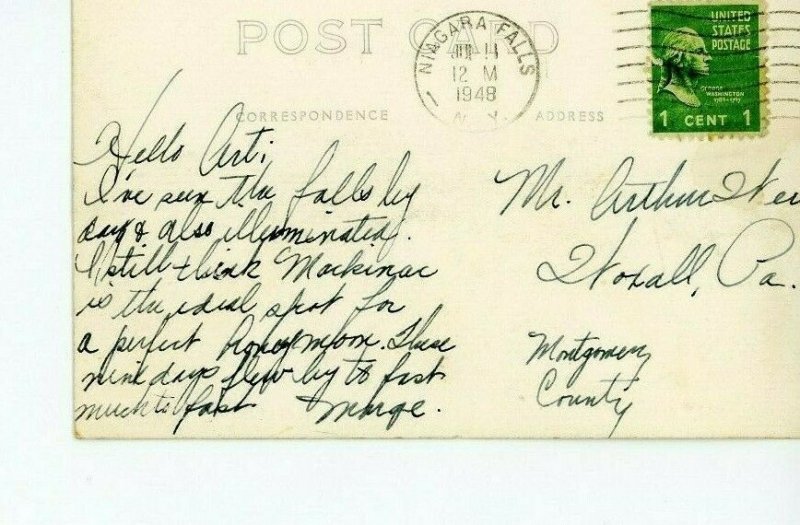 POST CARD
NIAGARA FALLS
JUL 11
12 M
1948
N. Y.
UNITED
STATES
POSTAGE
GEORGE
WASHINGTON
1 CENT 1
CORRESPONDENCE
ADDRESS
Hello Art;
I've seen the falls by
day & also illuminated.
I still think Mackinac
is the ideal spot for
a perfect honeymoon. These
nine days flew by to fast
much to fast Marge.
Mr. Arthur
Woxall, Pa.
Montgomery
County